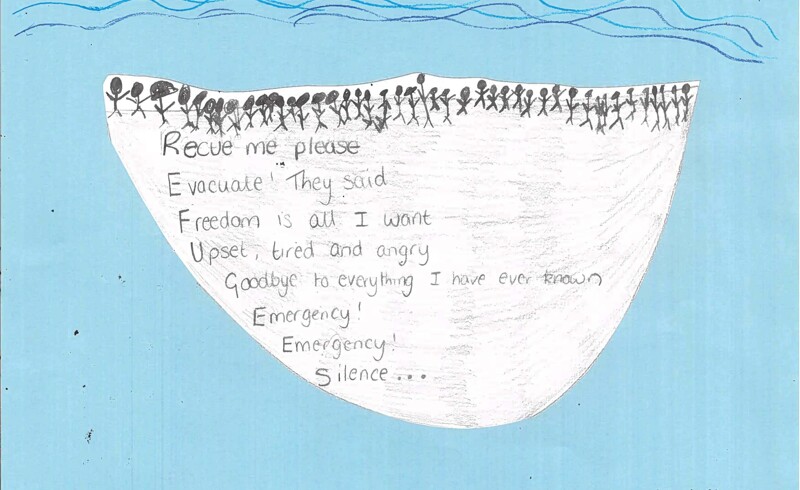 Recue me please
Evacuate! They said
Freedom is all I want
Upset, tired and angry
Goodbye to everything I have ever known
Emergency!
Emergency!
Silence...